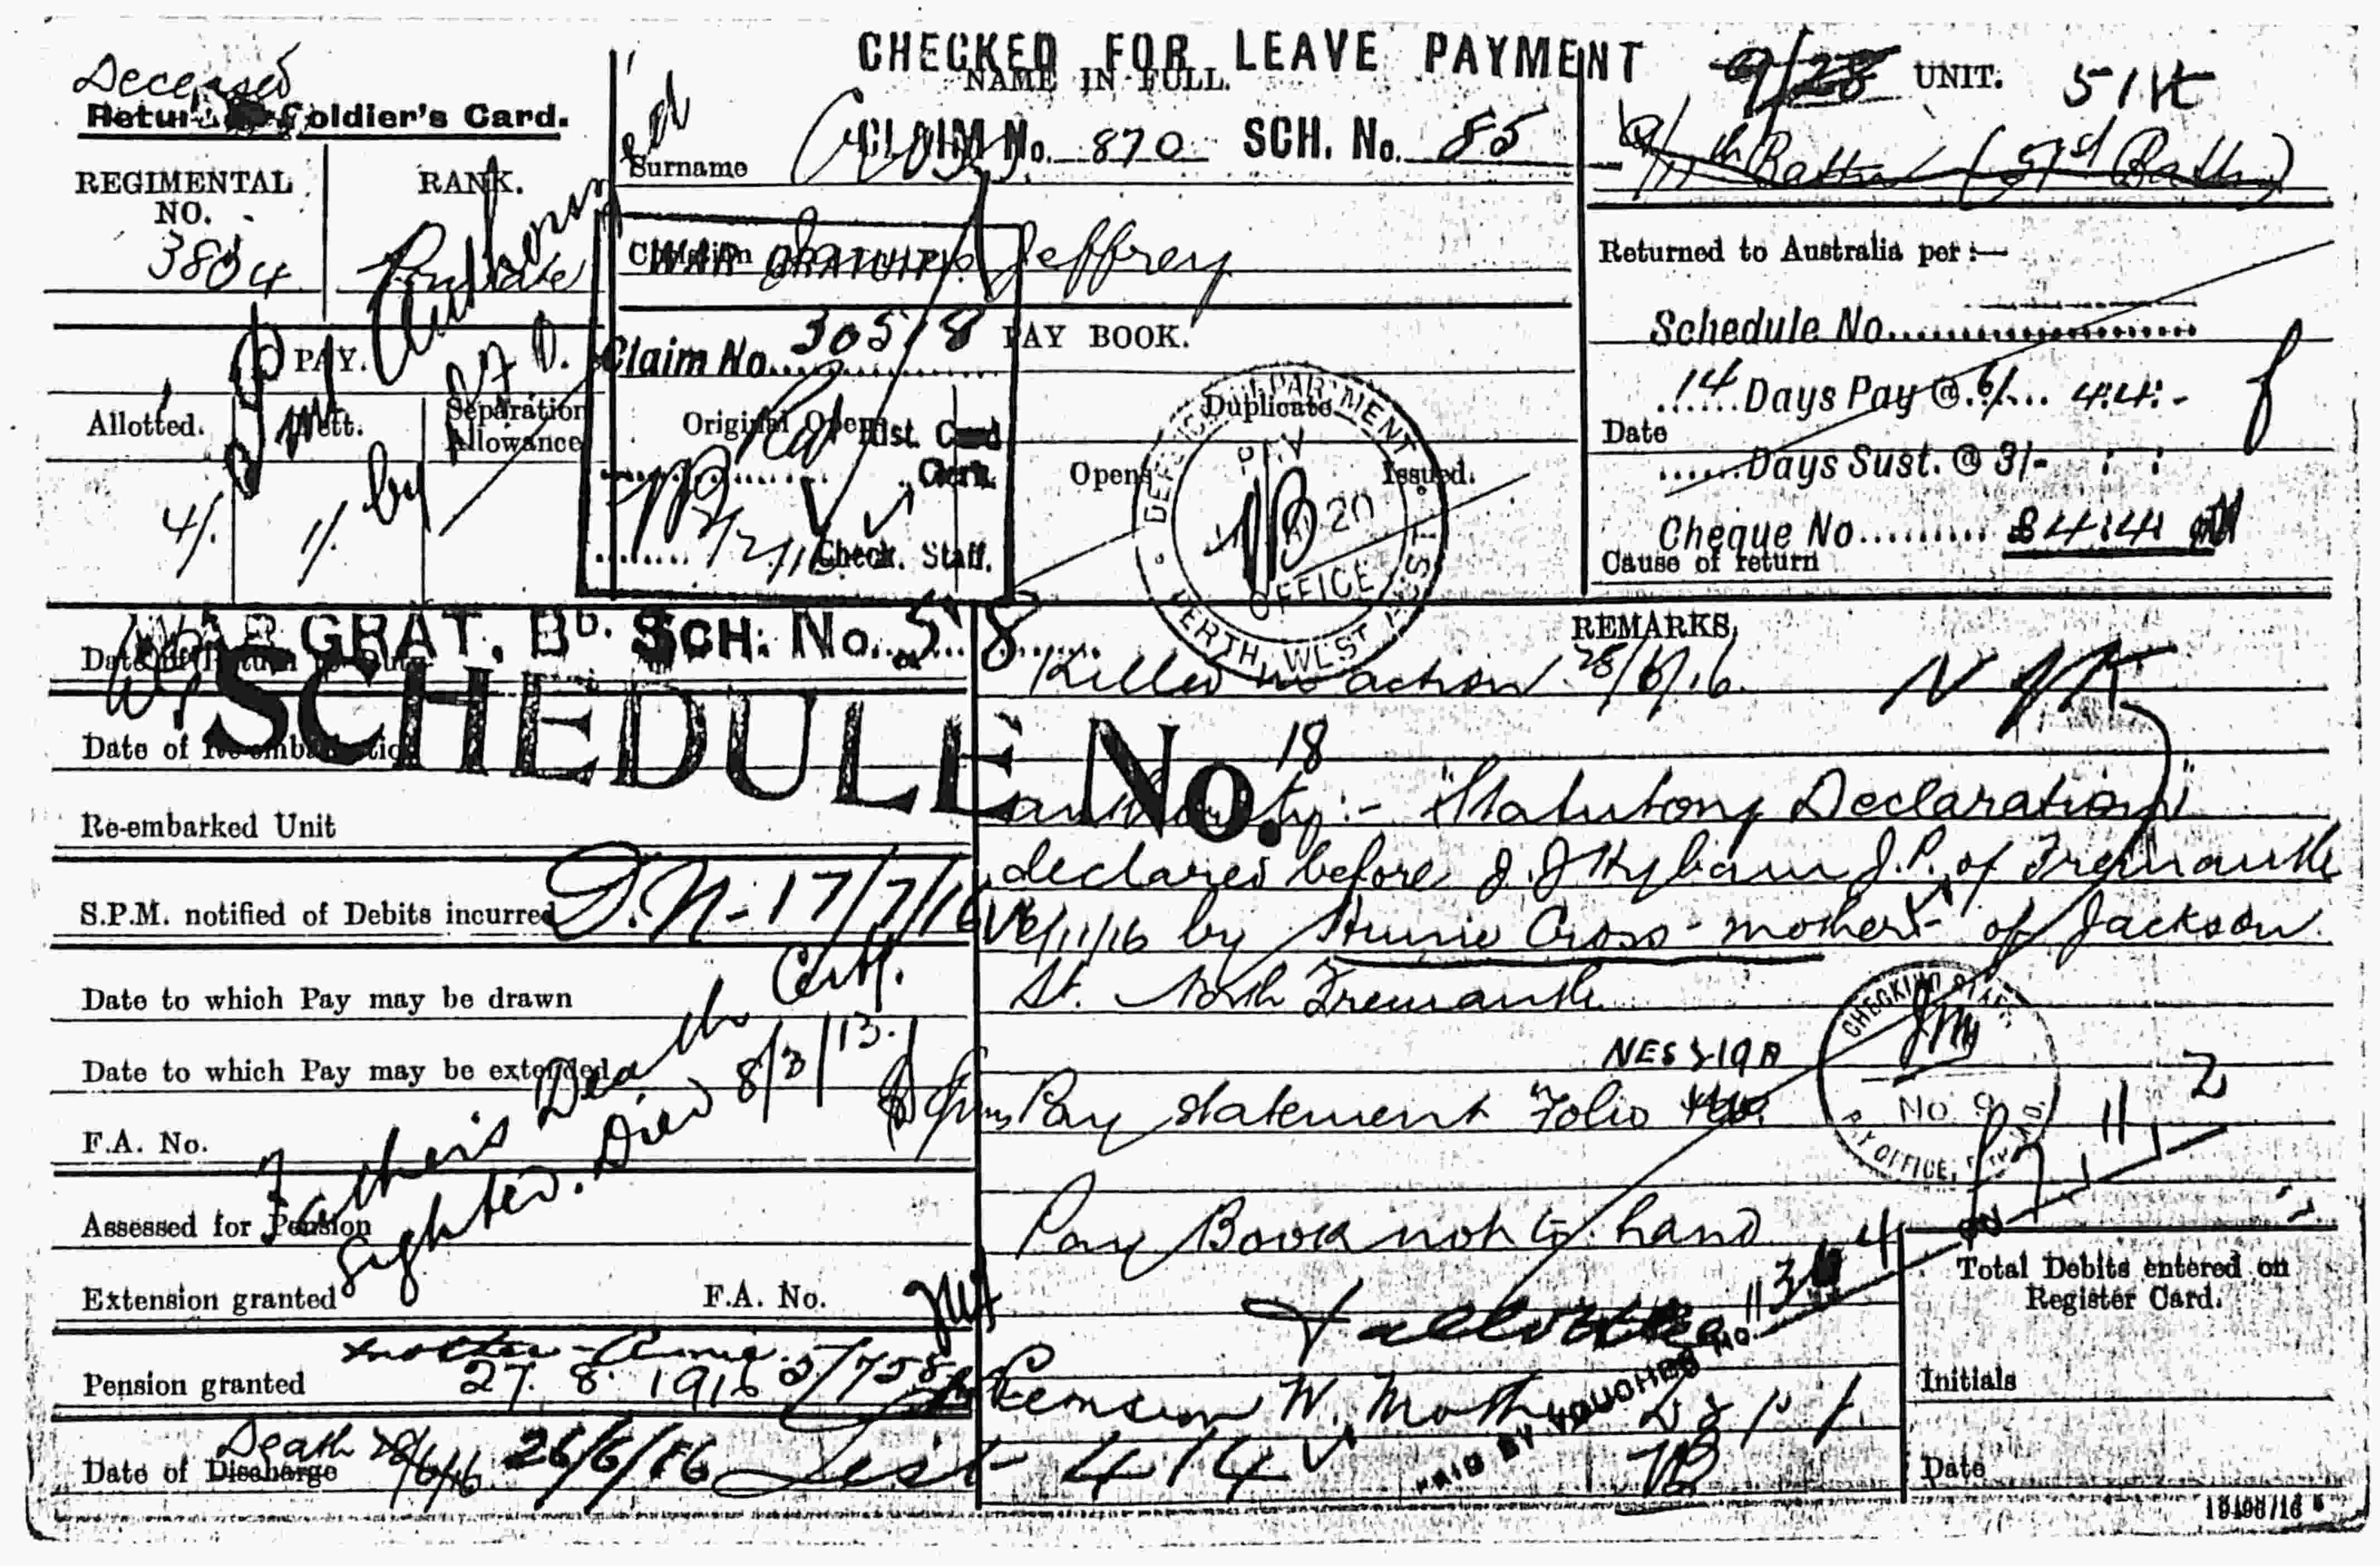 CHECKED FOR LEAVE PAYMENT
Deceased
Soldier's Card.
NAME IN FULL.
9/28 UNIT. 51K
CLAIM No. 870 SCH. No. 85
Surname Cross
9/11th Battn (51st Battn)
REGIMENTAL NO.
RANK.
3804
Private
Christian Jeffrey
WAR GRATUITY
Returned to Australia per :—
Claim No. 30518
PAY BOOK.
Schedule No.
PAY.
Allotted.
Nett.
Separation Allowance
Original Opens
Dist. Card
Clerk.
Duplicate
Opens
Issued.
14 Days Pay @ 6/- 4:4:-
Date
Days Sust. @ 3/- : :
4/.
1/.
by
Check. Staff.
DEFENCE DEPARTMENT
PAY
20
OFFICE
PERTH, WEST AUST
Cheque No. £4:4
Cause of return
WAR GRAT. Bd. SCH. No. 518
REMARKS.
Date of Return to Duty
Killed in action 28/6/16.
SCHEDULE No. 18
Date of Re-embarkation
authority:- "Statutory Declaration"
Re-embarked Unit
declared before J. J. Higham J.P. of Fremantle
S.P.M. notified of Debits incurred D.N - 17/7/16
by Annie Cross - mother - of Jackson
St. North Fremantle
Date to which Pay may be drawn
Date to which Pay may be extended
Father's Death Certf.
Sighted. Died 8/3/13.
CHECKING STAFF
No. 9
PAY OFFICE,
Pay statement Folio
F.A. No.
Assessed for Pension
Pay Book not to hand
Extension granted
F.A. No.
Total Debits entered on Register Card.
PAID BY VOUCHER No.
mother - Annie
Pension granted 27. 8. 1916
Pension W. Moth
Initials
Death
Date of Discharge 28/6/16 26/6/16 List 414
Date